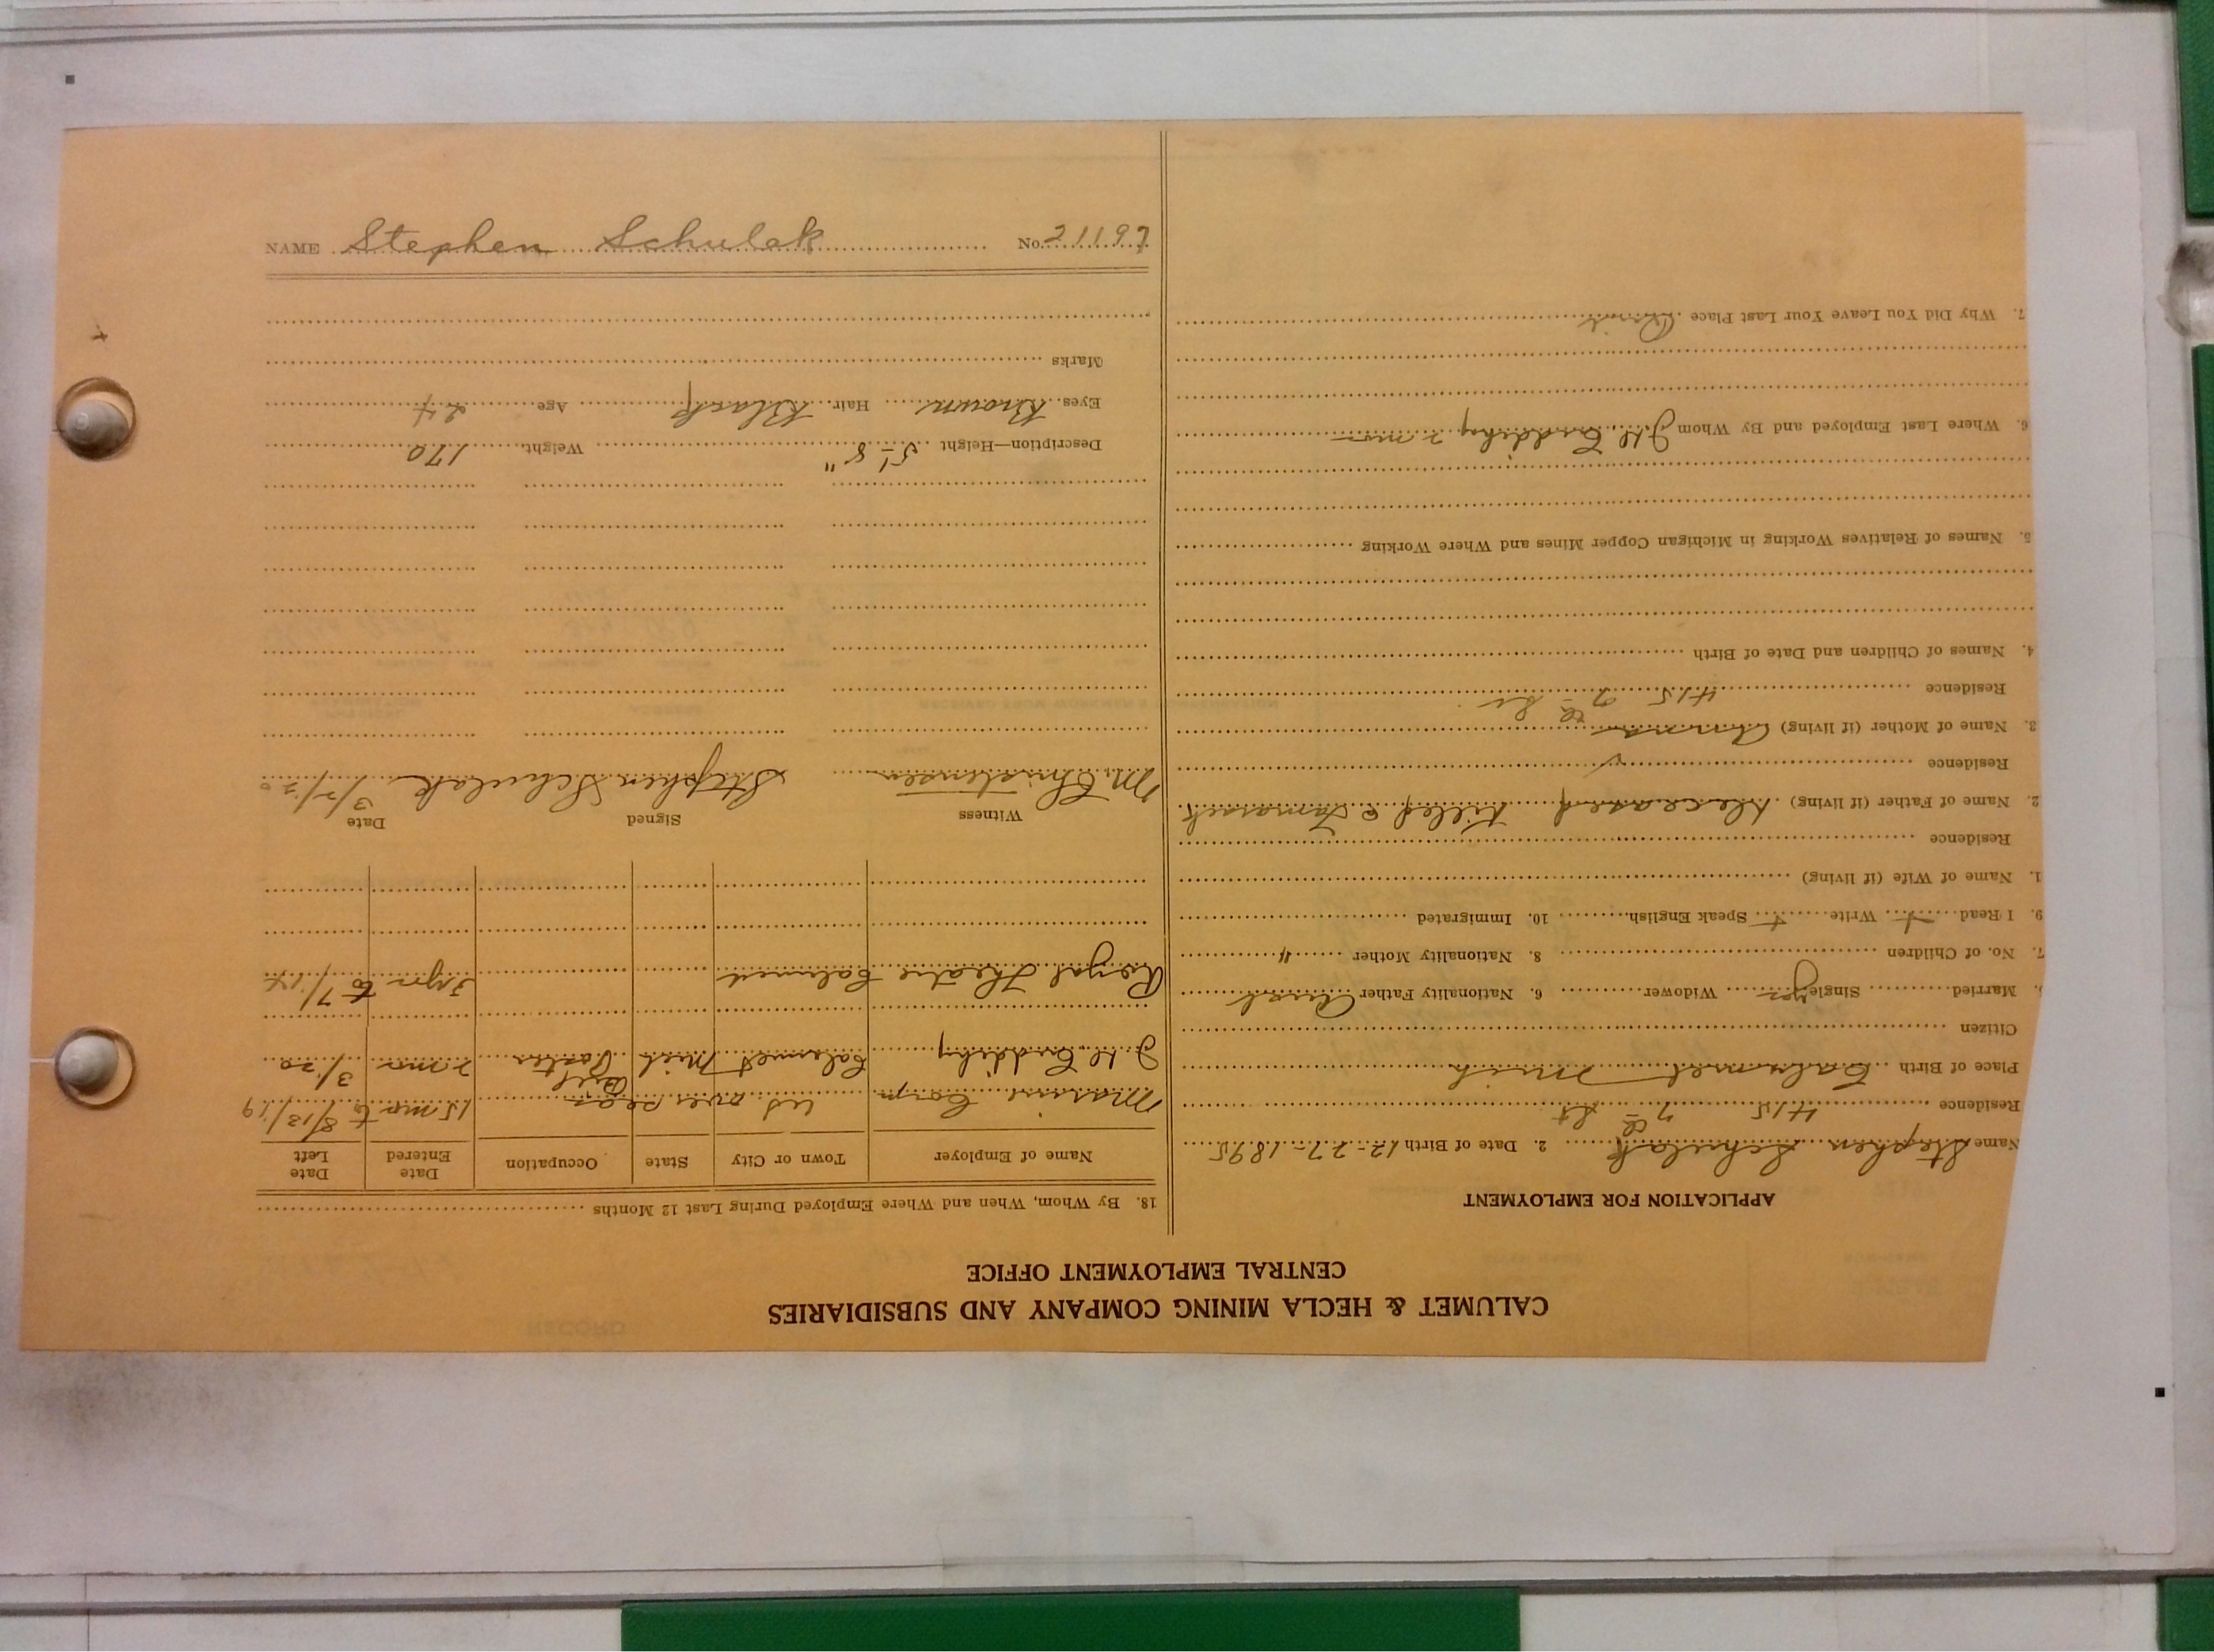 CALUMET & HECLA MINING COMPANY AND SUBSIDIARIES
CENTRAL EMPLOYMENT OFFICE
APPLICATION FOR EMPLOYMENT
Name Stephen Schulak 2. Date of Birth 12-27-1895
Residence 415 7th St
Place of Birth Calumet Mich
Citizen
Married Single yes Widower 6. Nationality Father Aust
7. No. of Children 8. Nationality Mother "
9. I Read + Write + Speak English 10. Immigrated
1. Name of Wife (if living)
Residence
2. Name of Father (if living) Deceased Killed @ Tamarack
Residence
3. Name of Mother (if living) Anna
Residence 415 7th St
4. Names of Children and Date of Birth
5. Names of Relatives Working in Michigan Copper Mines and Where Working
6. Where Last Employed and By Whom J.H. Cuddihy 2 mos
7. Why Did You Leave Your Last Place Quit
18. By Whom, When and Where Employed During Last 12 Months
Name of Employer Town or City State Occupation Date Entered Date Left
Marine Corps US over seas 15 mos to 8/13/19
J.H. Cuddihy Calumet Mich Bill Poster 2 mos 3/20
Royal Theatre Calumet 3 yrs to 7/17
Witness Signed Date
M. Christensen Stephen Schulak 3/2/20
Description—Height 5'-8" Weight 170
Eyes Brown Hair Black Age 24
Marks
NAME Stephen Schulak No. 21197